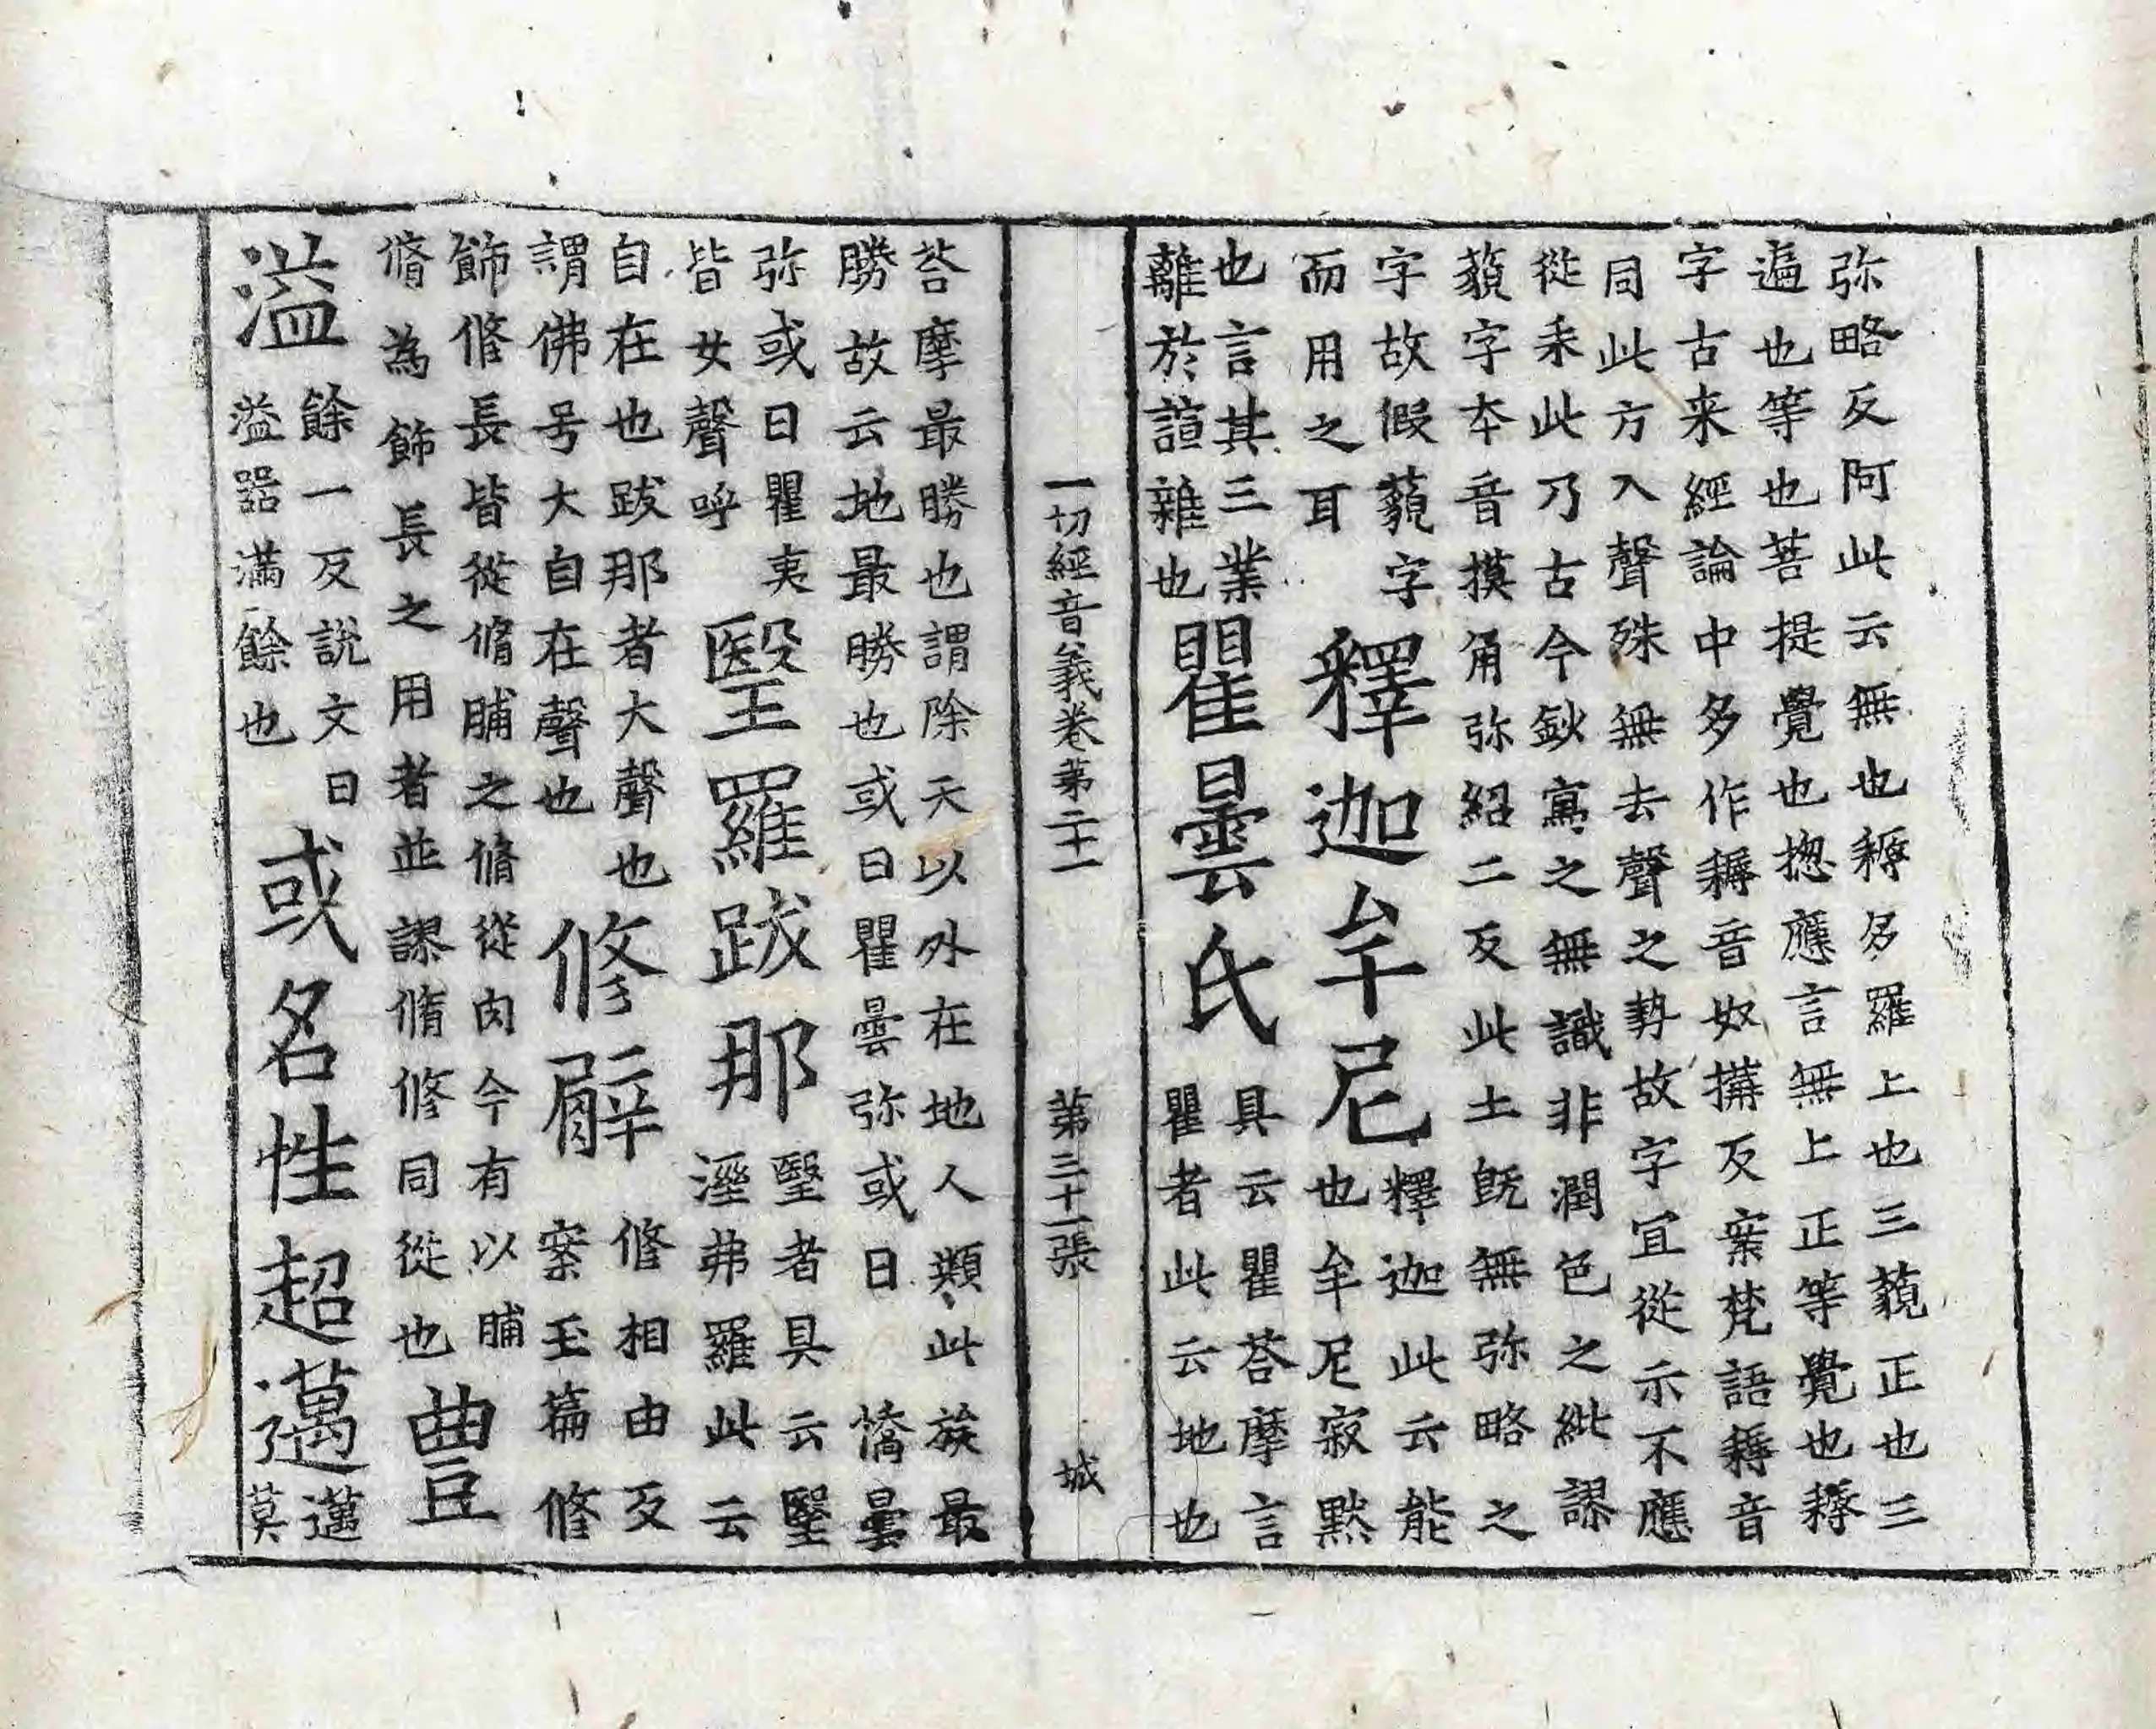 弥略反阿此云無也耨多羅上也三藐正也三
遍也等也菩提覺也揔應言無上正等覺也耨
字古来經論中多作耨音奴搆反案梵語耨音
同此方入聲殊無去聲之勢故字宜從示不應
從耒此乃古今鈔寫之無識非潤色之紕謬
藐字夲音摸角弥紹二反此土旣無弥略之
字故假藐字
而用之耳
釋迦牟尼
釋迦此云能
也牟尼寂默
也言其三業
離於諠雜也
瞿曇氏
具云瞿荅摩言
瞿者此云地也
一切經音義卷第二十一 第三十一張 城
荅摩最勝也謂除天以外在地人類此族最
勝故云地最勝也或曰瞿曇弥或曰憍曇
弥或曰瞿夷
皆女聲呼
毉羅跋那
毉者具云毉
濕弗羅此云
自在也跋那者大聲也
謂佛号大自在聲也
修臂
修相由反
案玉篇修
飾修長皆從脩脯之脩從肉今有以脯
脩為飾長之用者並謬脩修同從也
豊
溢
餘一反說文曰
溢器滿餘也
或名性超邁
邁
莫